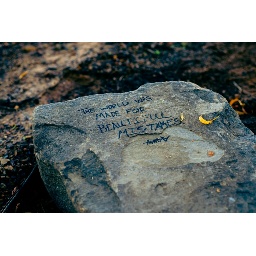 THE WORLD WAS
MADE FOR
BEAUTIFULL
MISTAKES